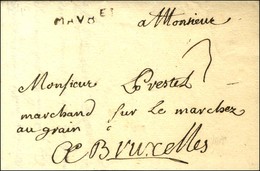 a Monsieur
Monsieur Prestel
marchand sur le marchez
au grain
A Bruxelles